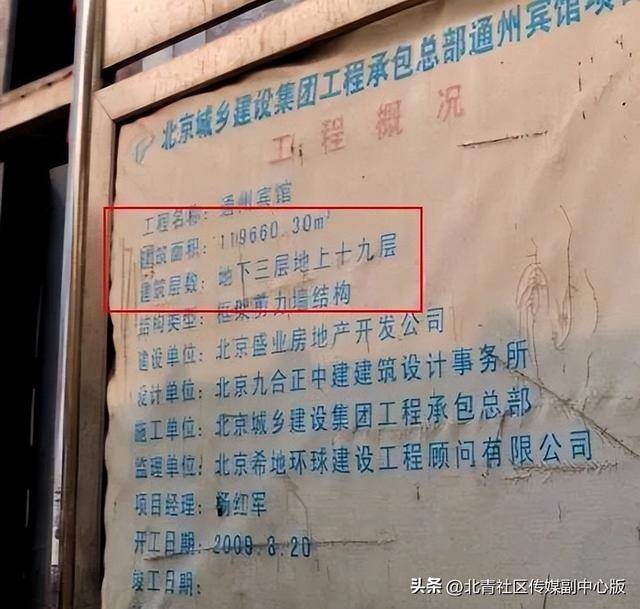 北京城乡建设集团工程承包总部通州宾馆项
工程概况
工程名称：通州宾馆
建筑面积：119660.30m²
建筑层数：地下三层地上十九层
结构类型：框架剪力墙结构
建设单位：北京盛业房地产开发公司
设计单位：北京九合正中建建筑设计事务所
施工单位：北京城乡建设集团工程承包总部
监理单位：北京希地环球建设工程顾问有限公司
项目经理：杨红军
开工日期：2009.3.20
竣工日期：
头条 @北青社区传媒副中心版